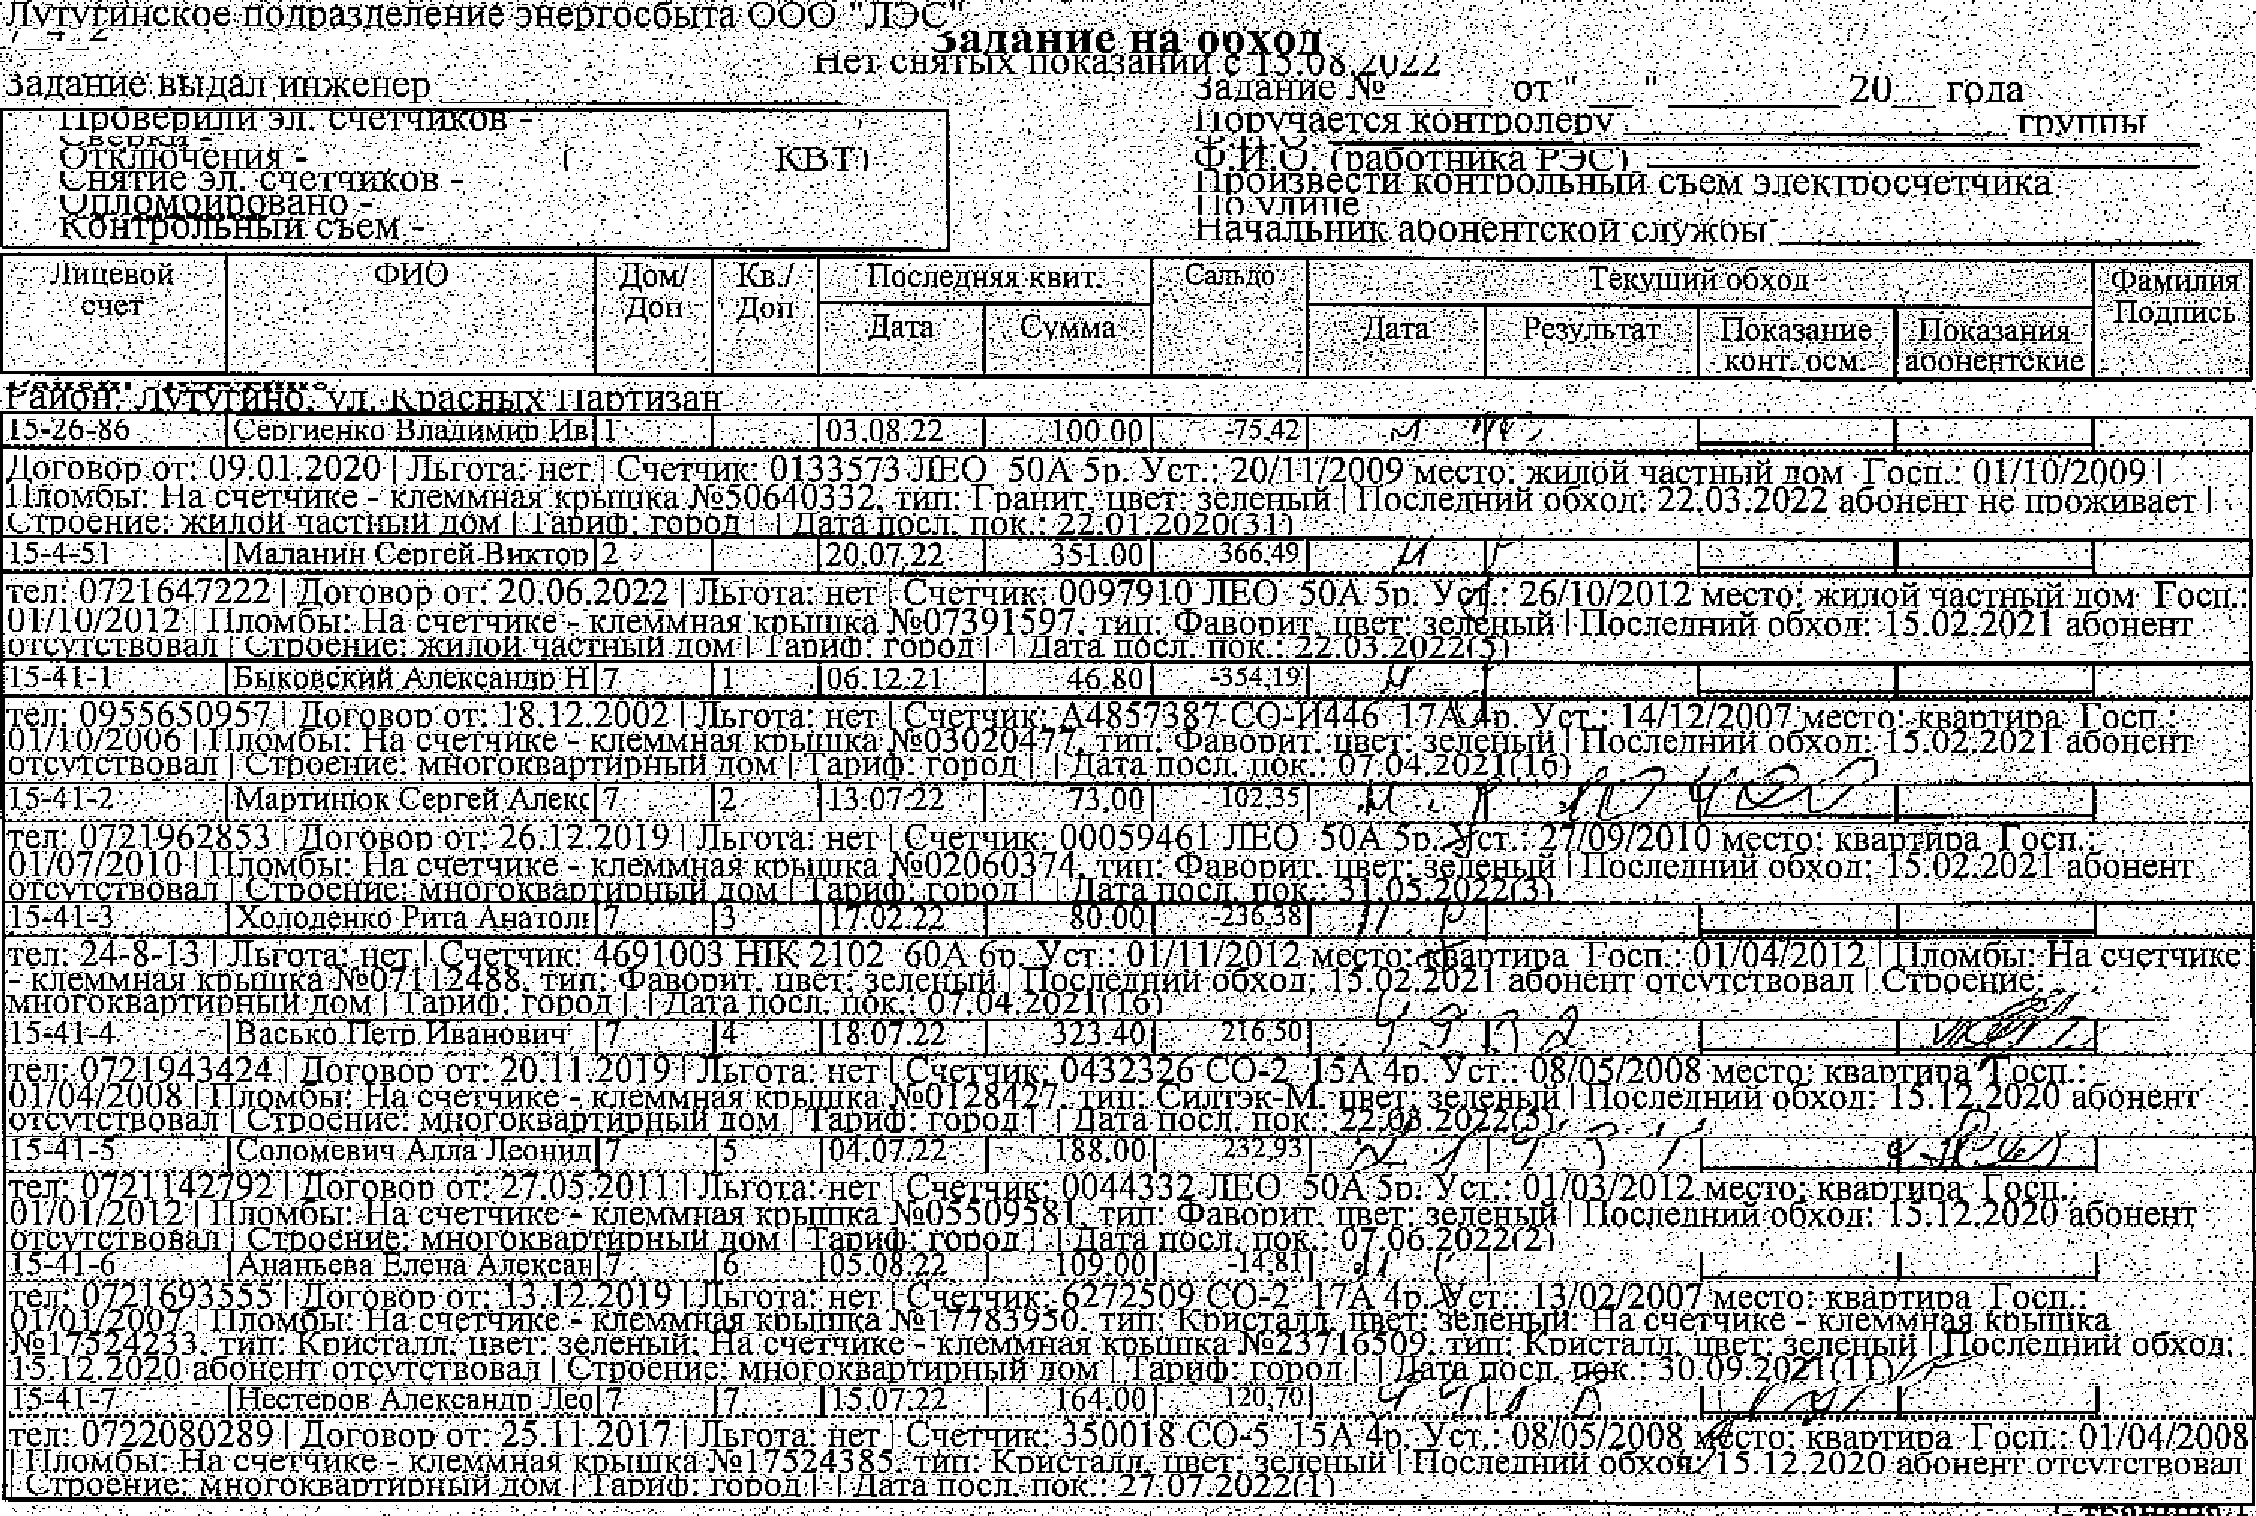 Лутугинское подразделение энергосбыта ООО "ЛЭС"
7_4_2
Задание на обход
Нет снятых показаний с 15.08.2022
Задание выдал инженер
Задание № от "__" 20__ года
Проверили эл. счетчиков -
Поручается контролеру группы
Сверки -
Отключения - ( КВТ)
Ф.И.О. (работника РЭС)
Снятие эл. счетчиков -
Произвести контрольный съем электросчетчика
Опломбировано -
По улице
Контрольный съем -
Начальник абонентской службы
Лицевой счет ФИО Дом/ Доп Кв./ Доп Последняя квит. Сальдо Текущий обход Фамилия Подпись
Дата Сумма Дата Результат Показание конт. осм. Показания абонентские
Район: Лутугино, ул. Красных Партизан
15-26-86 Сергиенко Владимир Ив 1 03.08.22 100.00 -75.42
Договор от: 09.01.2020 | Льгота: нет | Счетчик: 0133573 ЛЕО 50А 5р. Уст.: 20/11/2009 место: жилой частный дом Госп.: 01/10/2009 |
Пломбы: На счетчике - клеммная крышка №50640332, тип: Гранит, цвет: зеленый | Последний обход: 22.03.2022 абонент не проживает |
Строение: жилой частный дом | Тариф: город | | Дата посл. пок.: 22.01.2020(31)
15-4-51 Маланин Сергей Виктор 2 20.07.22 351.00 366.49
тел: 0721647222 | Договор от: 20.06.2022 | Льгота: нет | Счетчик: 0097910 ЛЕО 50А 5р. Уст.: 26/10/2012 место: жилой частный дом Госп.:
01/10/2012 | Пломбы: На счетчике - клеммная крышка №07391597, тип: Фаворит, цвет: зеленый | Последний обход: 15.02.2021 абонент
отсутствовал | Строение: жилой частный дом | Тариф: город | | Дата посл. пок.: 22.03.2022(5)
15-41-1 Быковский Александр Н 7 1 06.12.21 46.80 -354.19
тел: 0955650957 | Договор от: 18.12.2002 | Льгота: нет | Счетчик: А4857387 СО-И446 17А 4р. Уст.: 14/12/2007 место: квартира Госп.:
01/10/2006 | Пломбы: На счетчике - клеммная крышка №03020477, тип: Фаворит, цвет: зеленый | Последний обход: 15.02.2021 абонент
отсутствовал | Строение: многоквартирный дом | Тариф: город | | Дата посл. пок.: 07.04.2021(16)
15-41-2 Мартинюк Сергей Алекс 7 2 13.07.22 73.00 102.35 10400
тел: 0721962853 | Договор от: 26.12.2019 | Льгота: нет | Счетчик: 0005946 ЛЕО 50А 5р. Уст.: 27/09/2010 место: квартира Госп.:
01/07/2010 | Пломбы: На счетчике - клеммная крышка №02060374, тип: Фаворит, цвет: зеленый | Последний обход: 15.02.2021 абонент
отсутствовал | Строение: многоквартирный дом | Тариф: город | | Дата посл. пок.: 31.05.2022(3)
15-41-3 Холоденко Рита Анатоль 7 3 17.02.22 80.00 -236.38
тел: 24-8-13 | Льгота: нет | Счетчик: 4691003 НІК 2102 60А 6р. Уст.: 01/11/2012 место: квартира Госп.: 01/04/2012 | Пломбы: На счетчике
- клеммная крышка №07112488, тип: Фаворит, цвет: зеленый | Последний обход: 15.02.2021 абонент отсутствовал | Строение:
многоквартирный дом | Тариф: город | | Дата посл. пок.: 07.04.2021(16)
15-41-4 Васько Петр Иванович 7 4 18.07.22 323.40 216.50
тел: 0721943424 | Договор от: 20.11.2019 | Льгота: нет | Счетчик: 0432326 СО-2 15А 4р. Уст.: 08/05/2008 место: квартира Госп.:
01/04/2008 | Пломбы: На счетчике - клеммная крышка №0128427, тип: Силтэк-М, цвет: зеленый | Последний обход: 15.12.2020 абонент
отсутствовал | Строение: многоквартирный дом | Тариф: город | | Дата посл. пок.:
15-41-5 Соломевич Алла Леонид 7 5 04.07.22 188.00 232.93
тел: 0721142792 | Договор от: 27.05.2011 | Льгота: нет | Счетчик: 0044332 ЛЕО 50А 5р. Уст.: 01/03/2012 место: квартира Госп.:
01/01/2012 | Пломбы: На счетчике - клеммная крышка №05509581, тип: Фаворит, цвет: зеленый | Последний обход: 15.12.2020 абонент
отсутствовал | Строение: многоквартирный дом | Тариф: город | | Дата посл. пок.: 07.06.2022(2)
15-41-6 Ананьева Елена Алексан 7 6 05.08.22 109.00 -14.81
тел: 0721693555 | Договор от: 13.12.2019 | Льгота: нет | Счетчик: 6272509 СО-2 17А 4р. Уст.: 13/02/2007 место: квартира Госп.:
01/01/2007 | Пломбы: На счетчике - клеммная крышка №17783950, тип: Кристалл, цвет: зеленый; На счетчике - клеммная крышка
№17524233, тип: Кристалл, цвет: зеленый; На счетчике - клеммная крышка №23716509, тип: Кристалл, цвет: зеленый | Последний обход:
15.12.2020 абонент отсутствовал | Строение: многоквартирный дом | Тариф: город | | Дата посл. пок.: 30.09.2021(11)
15-41-7 Нестеров Александр Лео 7 7 15.07.22 164.00 120.70
тел: 0722080289 | Договор от: 25.11.2017 | Льгота: нет | Счетчик: 350018 СО-5 15А 4р. Уст.: 08/05/2008 место: квартира Госп.: 01/04/2008
| Пломбы: На счетчике - клеммная крышка №17524385, тип: Кристалл, цвет: зеленый | Последний обход: 15.12.2020 абонент отсутствовал
| Строение: многоквартирный дом | Тариф: город | | Дата посл. пок.: 27.07.2022(1)